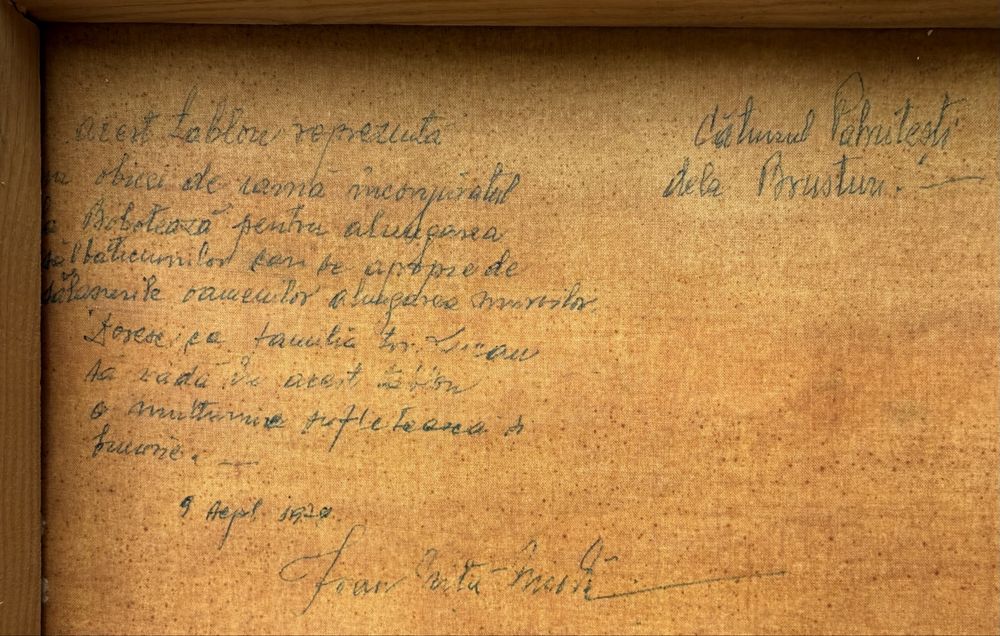 acest tablou reprezinta
obicei de iarnă înconjuratul
Bobotează pentru alungarea
sălbaticiunilor cari se apropie de
oamenilor alungarea
Doresc ca familia
să vadă în acest tablou
o multumire sufletească si
bucurie. —
9 sept 1970.
Ioan
Cătunul
dela Brusturi. —